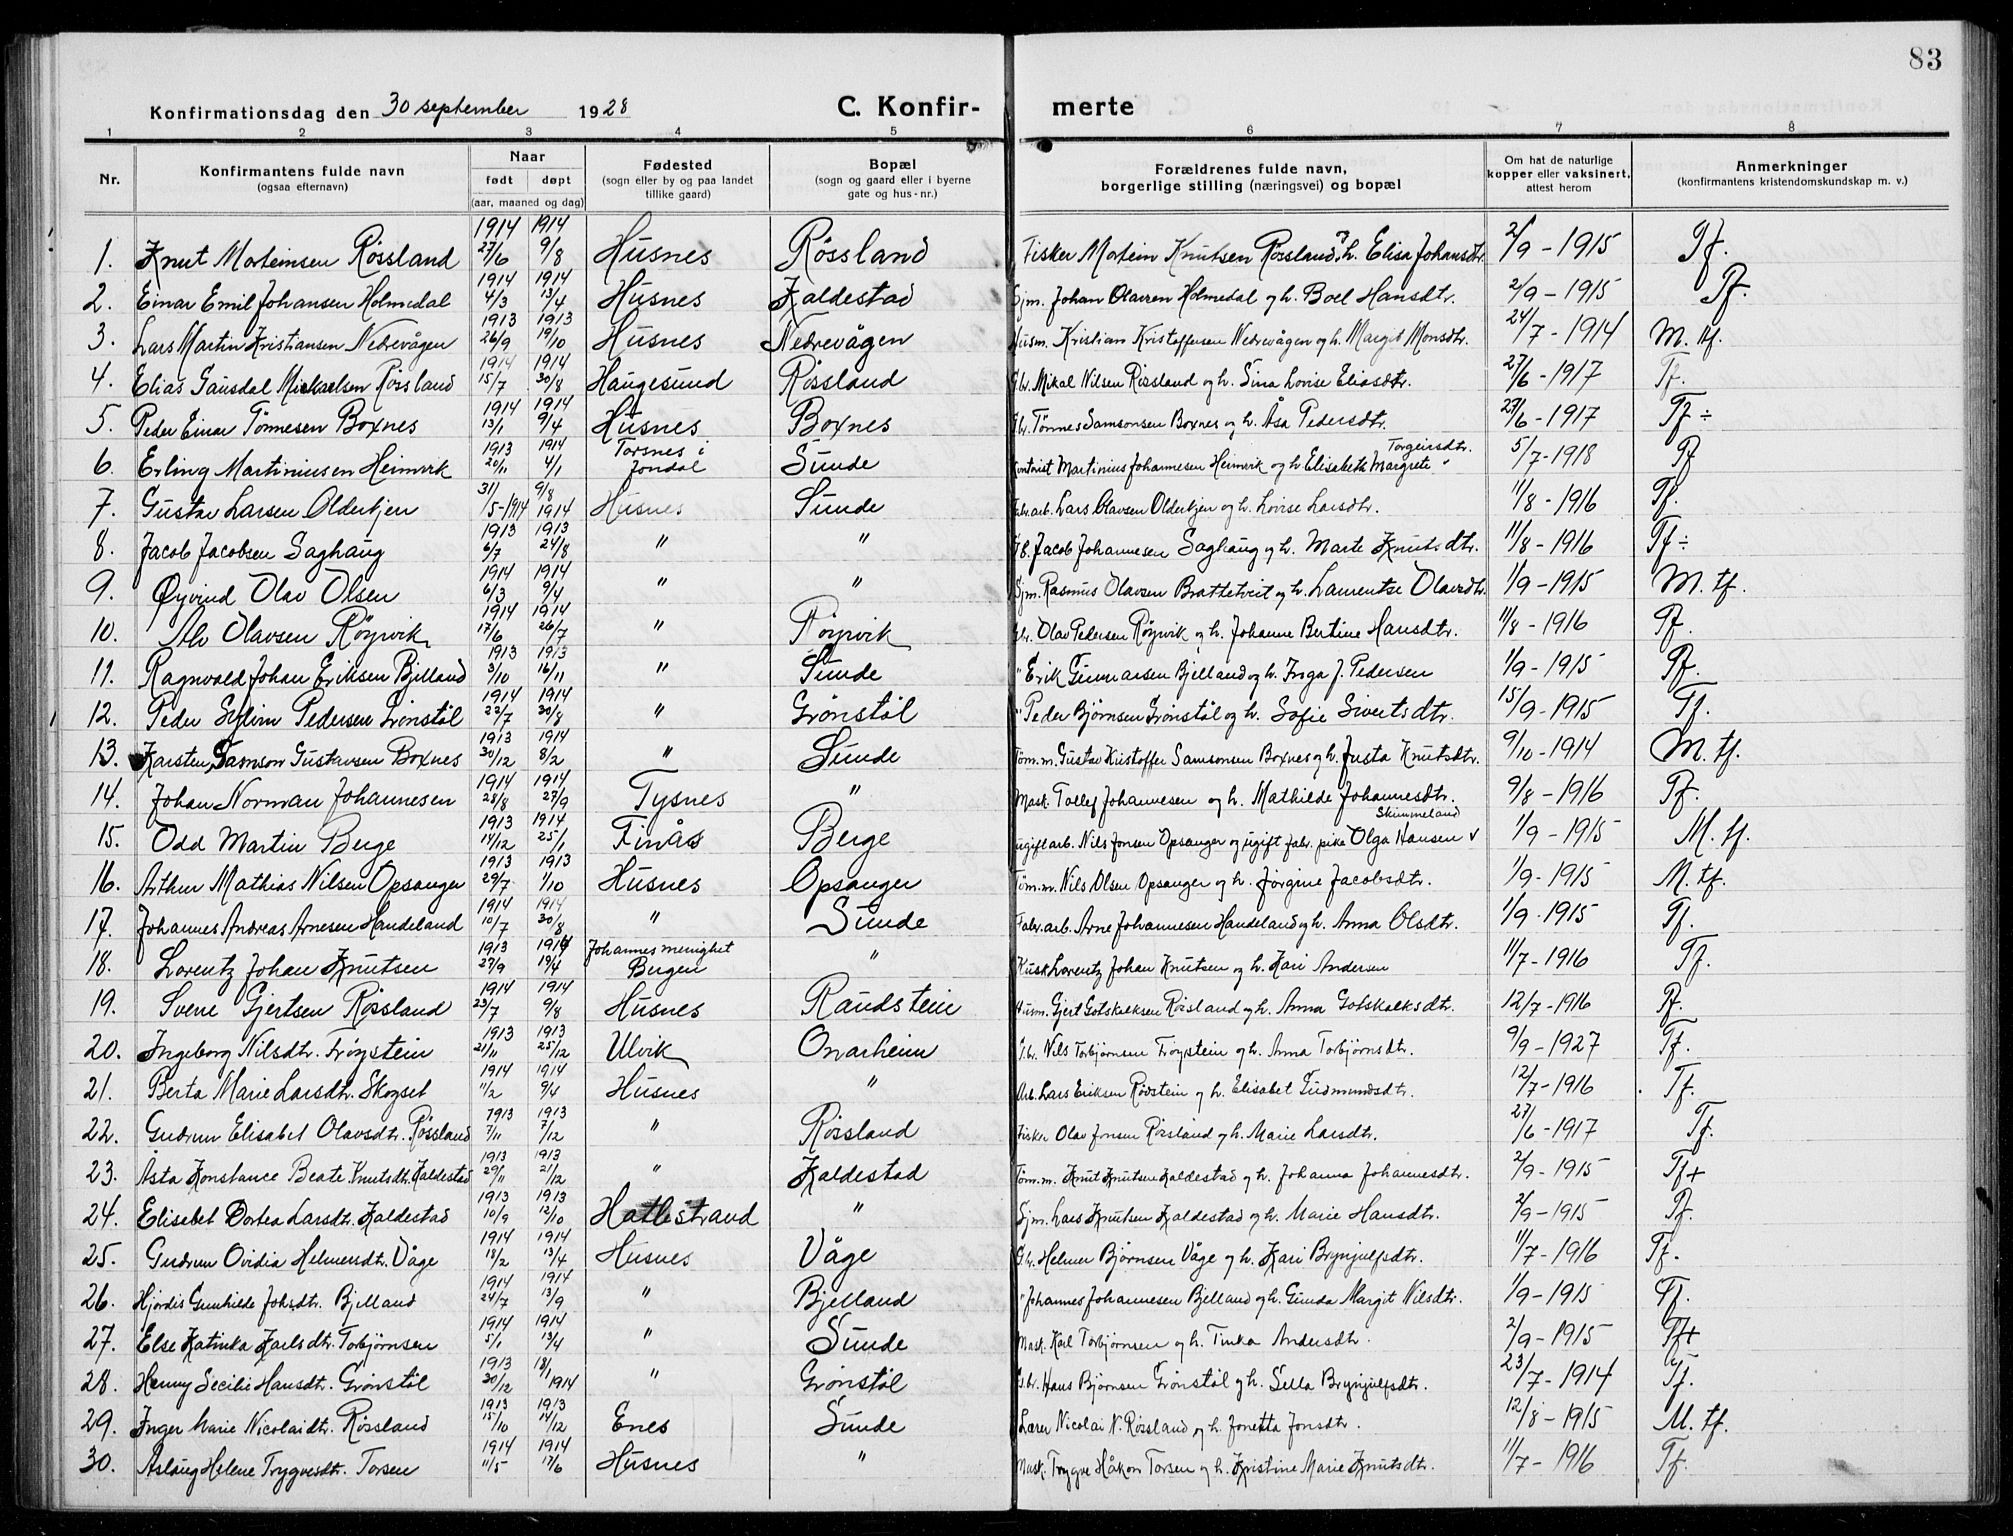 83
Konfirmationsdag den 30 september 1928 C. Konfir- merte
1 2 3 4 5 6 7 8
Nr. Konfirmantens fulde navn (ogsaa efternavn) Naar født døpt (aar, maaned og dag) Fødested (sogn eller by og paa landet tillike gaard) Bopæl (sogn og gaard eller i byerne gate og hus-nr.) Forældrenes fulde navn, borgerlige stilling (næringsvei) og bopæl Om hat de naturlige kopper eller vaksinert, attest herom Anmerkninger (konfirmantens kristendomskundskap m. v.)
1. Knut Morteinsen Røssland 1914 27/6 1914 9/8 Husnes Røssland Fisker Mortein Knutsen Røssland og h. Elisa Johansdtr. 2/9 - 1915 Tf.
2. Einar Emil Johansen Holmedal 1914 4/3 1914 13/4 Husnes Kaldestad Sjm. Johan Olavsen Holmedal og h. Boel Hansdtr. 2/9 - 1915 Tf.
3. Lars Martin Kristiansen Nedrevågen 1913 26/9 1913 19/10 Husnes Nedrevågen Husm. Kristian Kristoffersen Nedrevågen og h. Margit Monsdtr. 24/7 - 1914 M. tf.
4. Elias Gausdal Mickaelsen Røssland 1914 15/7 1914 30/8 Haugesund Røssland Gbr. Mikal Nilsen Røssland og h. Sina Lovise Eliasdtr. 27/6 - 1917 Tf.
5. Peder Einar Tønnesen Boxnes 1914 13/1 1914 9/4 Husnes Boxnes Gbr. Tønnes Samsonsen Boxnes og h. Åsa Pedersdtr. 27/6 - 1917 Tf ÷
6. Erling Martiniusen Heimvik 1913 20/11 1914 4/1 Torsnes i Jondal Sunde Kontorist Martinius Johannesen Heimvik og h. Elisabeth Margrete Torgeirsdtr. 5/7 - 1918 Tf
7. Gustav Larsen Olderkjen 31/5 - 1914 9/8 1914 Husnes Sunde Fabr.arb. Lars Olavsen Olderkjen og h. Lovise Larsdtr. 11/8 - 1916 Tf.
8. Jacob Jacobsen Saghaug 1913 6/7 1913 24/8 " " Gb. Jacob Johannesen Saghaug og h. Marte Knutsdtr. 11/8 - 1916 Tf ÷
9. Øyvind Olav Olsen 1914 6/3 1914 9/4 " " Sjm. Rasmus Olavsen Brattetveit og h. Laurentse Olavsdtr. 1/9 - 1915 M. tf.
10. Alv Olavsen Røyrvik 1914 17/6 1914 26/7 " Røyrvik Gbr. Olav Pedersen Røyrvik og h. Johanne Bertine Hansdtr. 11/8 - 1916 Tf.
11. Ragnvald Johan Eriksen Bjelland 1913 3/10 1913 16/11 " Sunde " Erik Gunnarsen Bjelland og h. Inga J. Pedersen 1/9 - 1915 Tf.
12. Peder Sylvin Pedersen Grønstøl 1914 22/7 1914 30/8 " Grønstøl " Peder Bjørnsen Grønstøl og h. Sofie Sivertsdtr. 15/9 - 1915 Tf.
13. Karsten Samson Gustavsen Boxnes 1913 30/12 1914 8/2 " Sunde Tøm.m. Gustav Kristoffer Samsonsen Boxnes og h. Justa Knutsdtr. 9/10 - 1914 M. tf.
14. Johan Norman Johannesen 1914 28/8 1914 27/9 Tysnes " Mask. Tollef Johannesen og h. Mathilde Johannesdtr. 9/8 - 1916 Tf.
15. Odd Martin Berge 1913 14/12 1914 25/1 Finås Berge ugift arb. Nils Jonsen Opsanger og ugift fabr. pike Olga Hansen Skimmeland 1/9 - 1915 M. tf.
16. Arthur Mathias Nilsen Opsanger 1913 29/7 1913 1/10 Husnes Opsanger Tøm.m. Nils Olsen Opsanger og h. Jørgine Jacobsdtr. 1/9 - 1915 M. tf.
17. Johannes Andreas Arnesen Handeland 1914 10/7 1914 30/8 " Sunde Fabr.arb. Arne Johannesen Handeland og h. Anna Olsdtr. 1/9 - 1915 Tf.
18. Lorentz Johan Knutsen 1913 27/9 1914 19/4 Johannes menighet Bergen " Kusk Lorentz Johan Knutsen og h. Kari Andersen 11/7 - 1916 Tf.
19. Svene Gjertsen Røssland 1914 23/7 1914 9/8 Husnes Raudstein Husm. Gjert Gotskalksen Røssland og h. Anna Gotskalksdtr. 12/7 - 1916 Tf.
20. Ingeborg Nilsdtr. Frøystein 1913 21/11 1913 25/12 Ulvik Onarheim G.br. Nils Torbjørnsen Frøystein og h. Anna Torbjørnsdtr. 9/9 - 1927 Tf.
21. Berta Marie Larsdtr. Skogset 1914 11/2 1914 9/4 Husnes " Arb. Lars Eriksen Rødstein og h. Elisabet Gudmundsdtr. 12/7 - 1916 Tf.
22. Gudrun Elisabet Olavsdtr. Røssland 1913 7/11 1913 7/12 " Røssland Fisker Olav Jonsen Røssland og h. Marie Larsdtr. 27/6 - 1917 Tf.
23. Åsta Konstance Beate Knutsdtr. Kaldestad 1913 29/11 1913 21/12 " Kaldestad Tøm.m. Knut Knutsen Kaldestad og h. Johanna Johannesdtr. 2/9 - 1915 Tf+
24. Elisabet Dortea Larsdtr. Kaldestad 1913 10/9 1913 12/10 Hatlestrand " Sjm. Lars Knutsen Kaldestad og h. Marie Hansdtr. 2/9 - 1915 Tf.
25. Gudrun Ovidia Helmersdtr. Våge 1914 18/2 1914 13/4 Husnes Våge G.br. Helmer Bjørnsen Våge og h. Kari Brynjulfsdtr. 11/7 - 1916 Tf.
26. Hjørdis Gunhilde Johsdtr. Bjelland 1914 24/7 1914 13/9 " Bjelland " Johannes Johannesen Bjelland og h. Gunda Margit Nilsdtr. 1/9 - 1915 Tf.
27. Else Katinka Karlsdtr. Torbjørnsen 1914 5/1 1914 13/4 " Sunde Mask. Karl Torbjørnsen og h. Tinka Andersdtr. 2/9 - 1915 Tf+
28. Henny Secilie Hansdtr. Grønstøl 1913 30/12 18/1 1914 " Grønstøl G.br. Hans Bjørnsen Grønstøl og h. Sella Brynjulfsdtr. 23/7 - 1914 Tf.
29. Inger Marie Nicolaidtr. Røssland 1913 15/10 1913 14/12 Enes Sunde Lærer Nicolai N. Røssland og h. Jonetta Jonsdtr. 12/8 - 1915 M. tf.
30. Aslaug Helene Trygvesdtr. Torsen 1914 11/5 1914 17/6 Husnes " Mask. Trygve Håkon Torsen og h. Kristine Marie Knutsdtr. 11/7 - 1916 Tf.